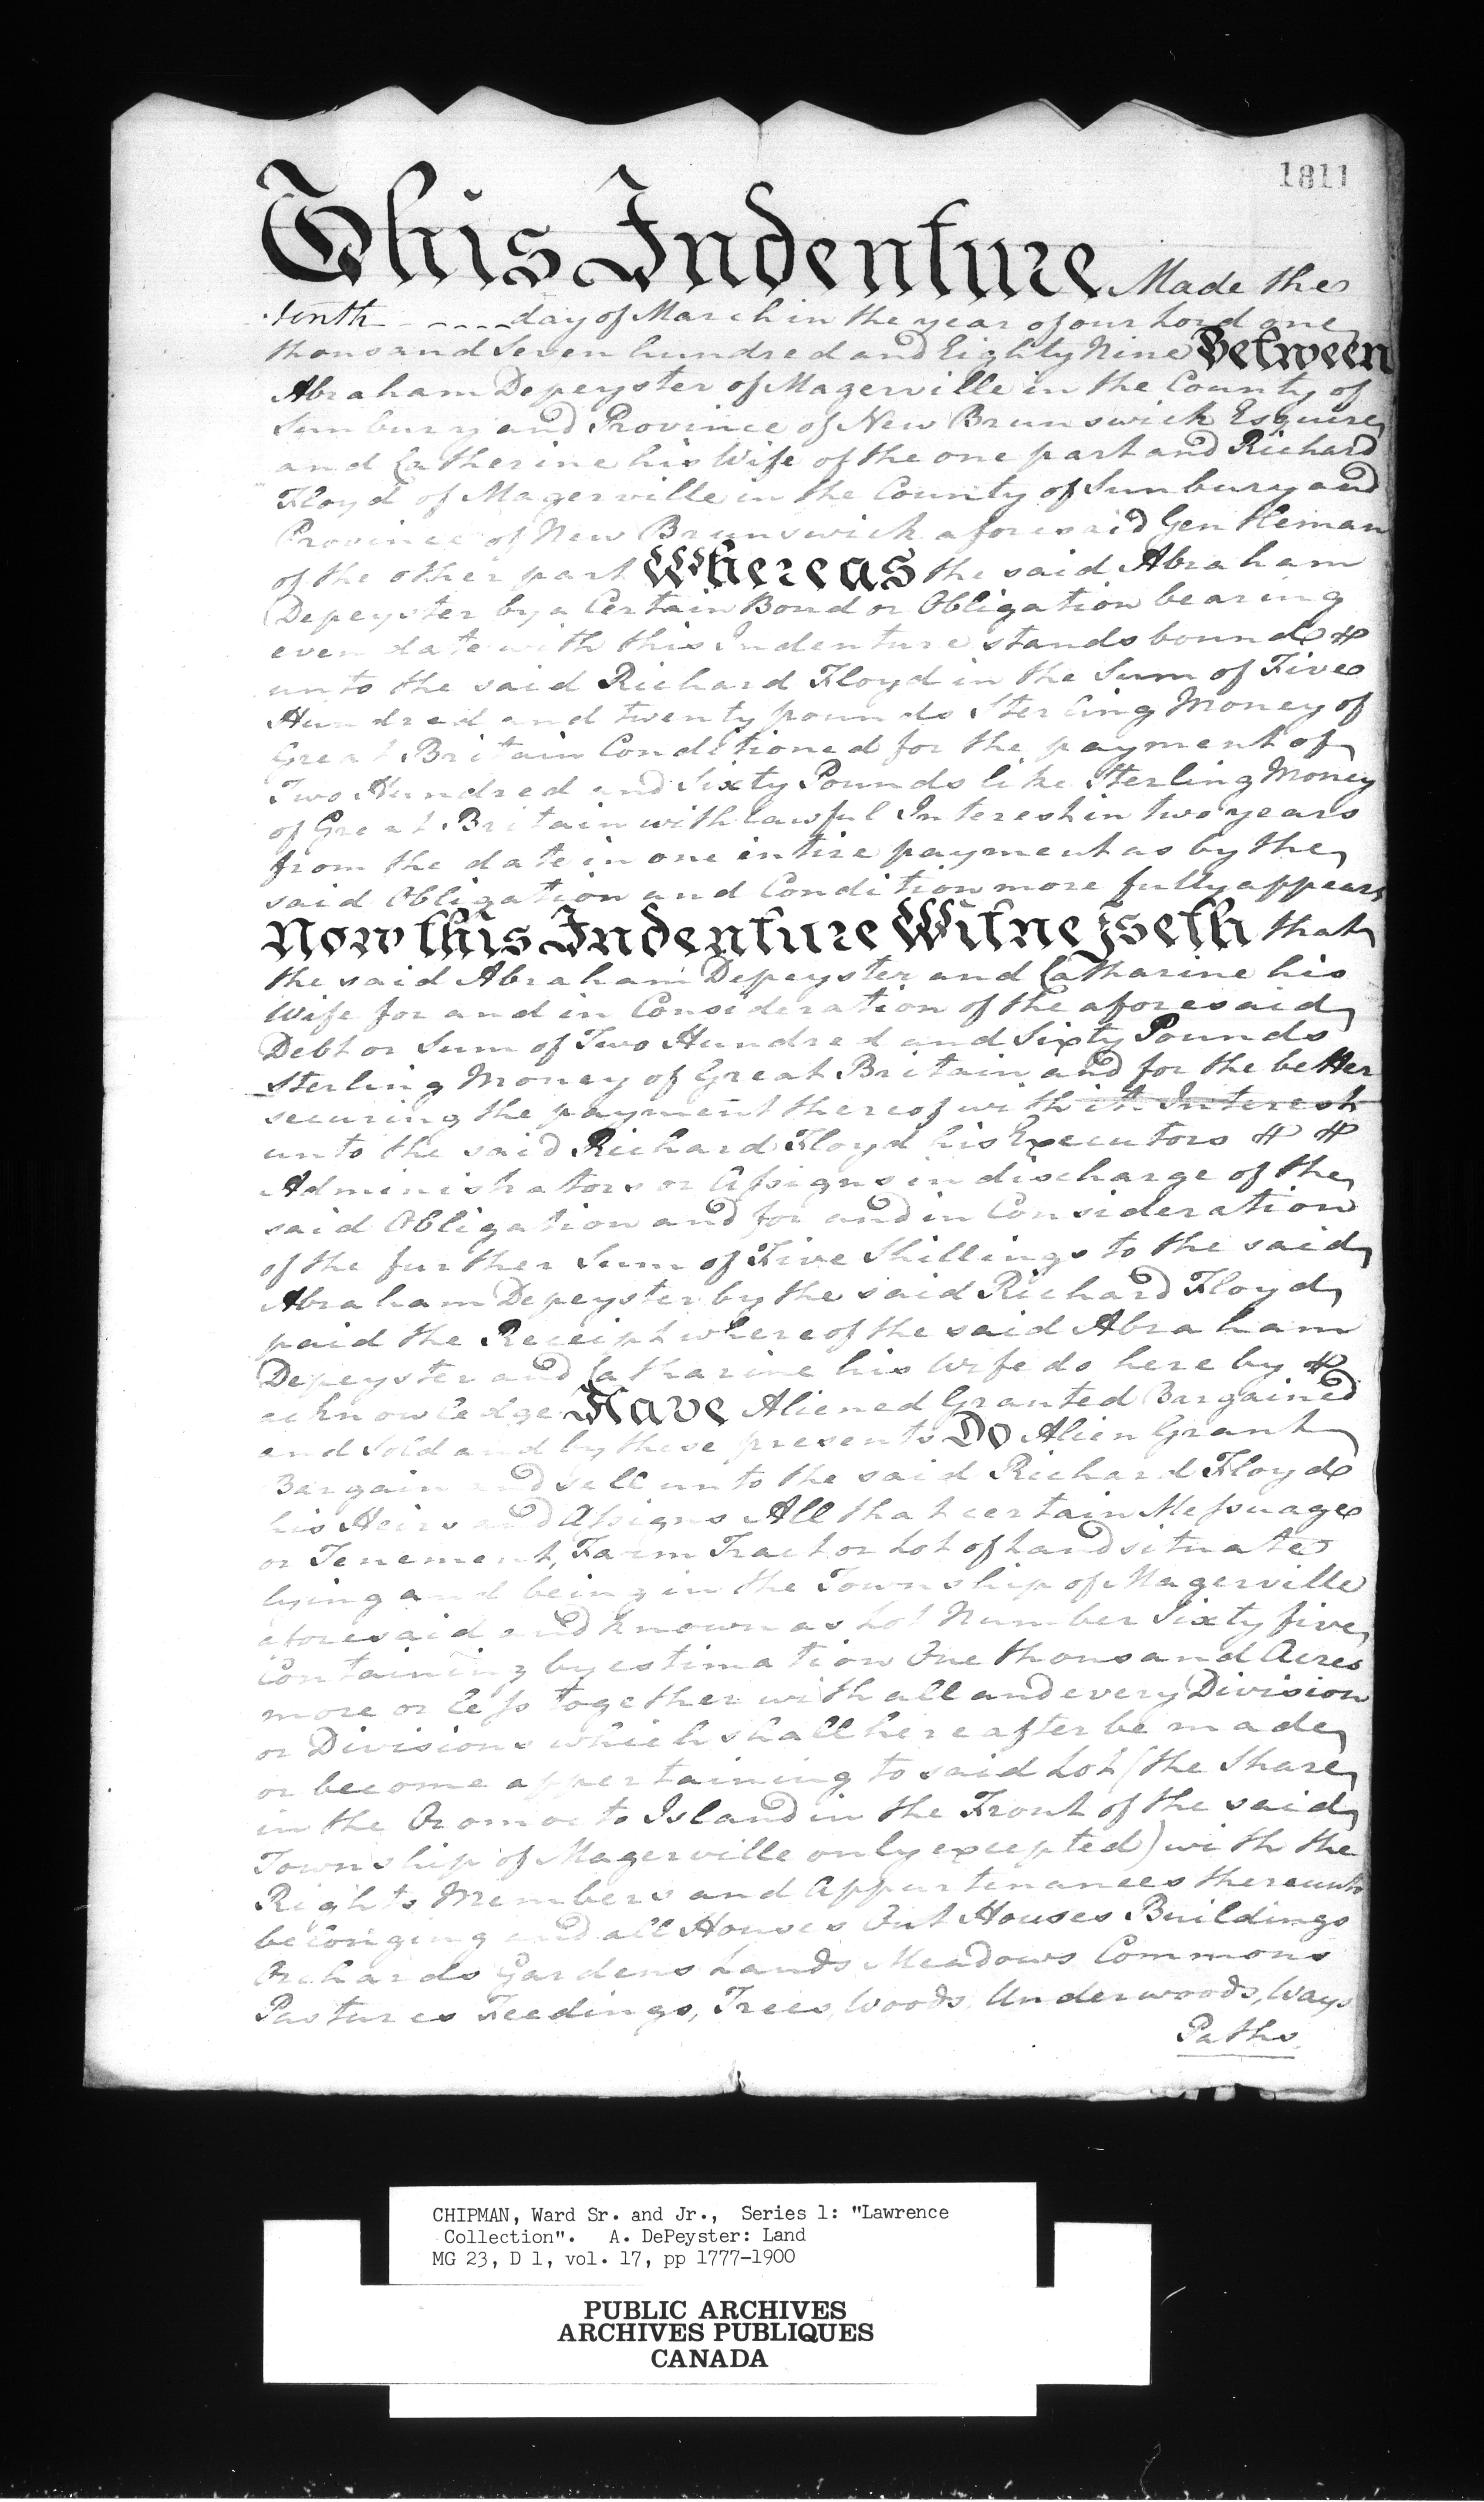 1811
This Indenture Made the
tenth day of March in the year of our Lord one
thousand Seven hundred and Eighty Nine Between
Abraham Depeyster of Magerville in the County of
Sunbury and Province of New Brunswick Esquire
and Catherine his Wife of the one part and Richard
Floyd of Magerville in the County of Sunbury and
Province of New Brunswick aforesaid Gentleman
of the other part Whereas the said Abraham
Depeyster by a Certain Bond or Obligation bearing
even date with this Indenture stands bound
unto the said Richard Floyd in the Sum of Five
Hundred and twenty pounds Sterling Money of
Great Britain Conditioned for the payment of
Two Hundred and Sixty Pounds like Sterling Money
of Great Britain with lawful Interest in two years
from the date in one intire payment as by the
said Obligation and Condition more fully appears
Now this Indenture Witnesseth that
the said Abraham Depeyster and Catharine his
Wife for and in Consideration of the aforesaid
Debt or Sum of Two Hundred and Sixty Pounds
Sterling Money of Great Britain and for the better
securing the payment thereof with it Interest
unto the said Richard Floyd his Executors
Administrators or Assigns in discharge of the
said Obligation and for and in Consideration
of the further Sum of Five Shillings to the said
Abraham Depeyster by the said Richard Floyd
paid the Receipt whereof the said Abraham
Depeyster and Catharine his Wife do here by
acknowledge Have Aliened Granted Bargained
and Sold and by these presents Do Alien Grant
Bargain and sell unto the said Richard Floyd
his Heirs and Assigns All that certain Messuage
or Tenement, Farm Tract or Lot of Land situate
lying and being in the Township of Magerville
aforesaid and known as Lot Number Sixty five
Containing by estimation One thousand Acres
more or less together with all and every Division
or Divisions which shall hereafter be made
or become appertaining to said Lot (the Share
in the Oromocto Island in the Front of the said
Township of Magerville only excepted) with the
Rights Members and Appurtenances thereunto
belonging and all Houses Out Houses Buildings
Orchards Gardens Lands Meadows Commons
Pastures Feedings, Trees, Woods, Underwoods, Ways
Paths
CHIPMAN, Ward Sr. and Jr., Series 1: "Lawrence
Collection". A. DePeyster: Land
MG 23, D 1, vol. 17, pp 1777-1900
PUBLIC ARCHIVES
ARCHIVES PUBLIQUES
CANADA